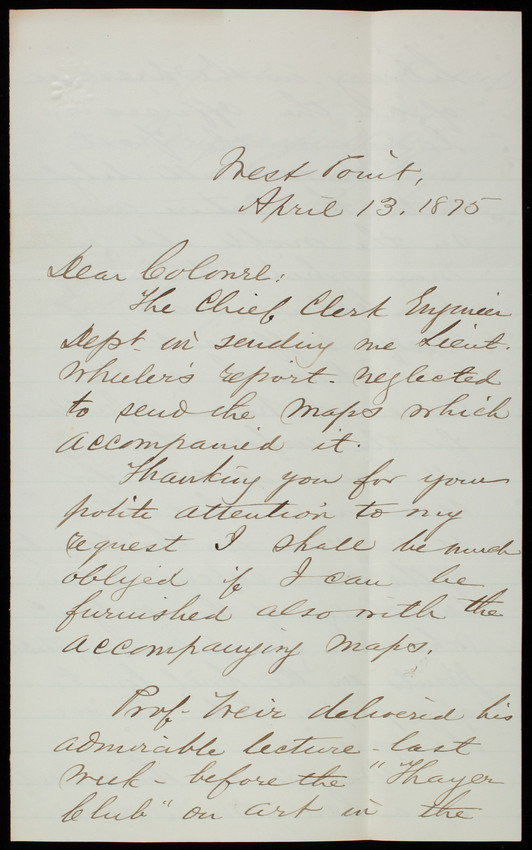 West Point,
April 13. 1875
Dear Colonel:
The Chief Clerk Engineer
Dept. in sending me Lieut.
Wheeler's report - neglected
to send the maps which
accompanied it.
Thanking you for your
polite attention to my
request I shall be much
obliged if I can be
furnished also with the
accompanying maps.
Prof. Weir delivered his
admirable lecture - last
week - before the "Thayer
Club" on art in the